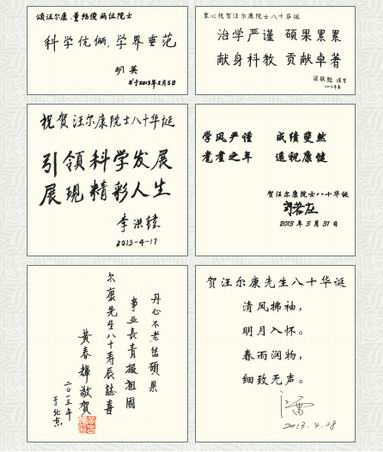 颂汪尔康、董绍俊两位院士
科学伉俪，学界垂范
明英
于2013年2月5日
衷心祝贺汪尔康院士八十华诞
治学严谨 硕果累累
献身科教 贡献卓著
祝贺汪尔康院士八十华诞
引领科学发展
展现精彩人生
李洪禧
2013-4-17
学风严谨 成绩斐然
耄耋之年 遥祝康健
贺汪尔康院士八十华诞
2013年3月31日
丹心不老结硕果
事业长青报祖国
尔康先生八十寿辰誌喜
黄春辉敬贺
二〇一三年
于北京
贺汪尔康先生八十华诞
清风拂袖，
明月入怀。
春雨润物，
细致无声。
江雷
2013.4.28